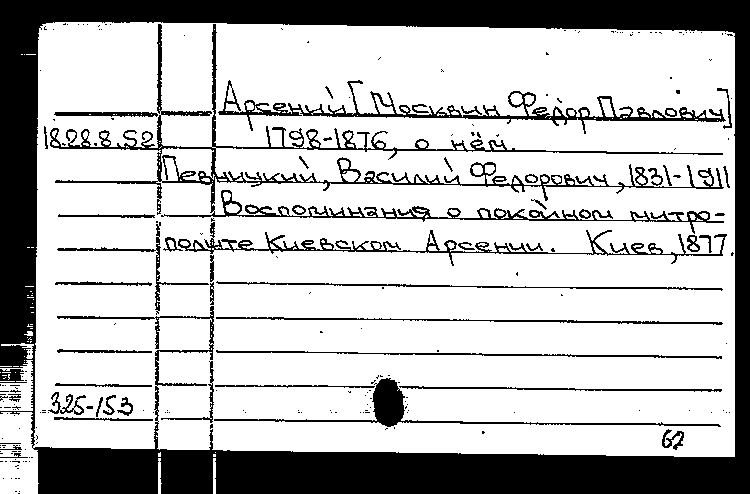 Арсений [Москвин, Федор Павлович]
18.28.8.52 1798-1876, о нём.
Певницкий, Василий Федорович, 1831-1911
Воспоминания о покойном митро-
полите Киевском Арсении. Киев, 1877.
325-153
62